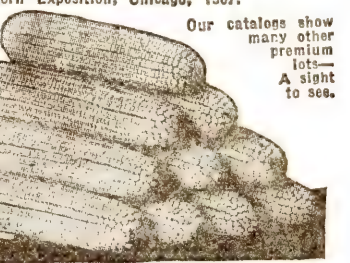 Exposition, Chicago, 1907.
Our catalogs show
many other
premium
lots—
A sight
to see.